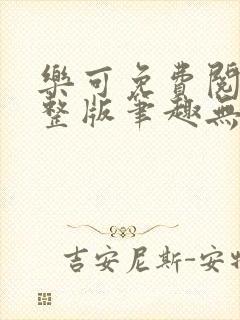 樂可免費閱
整版筆趣無
吉安尼斯-安特